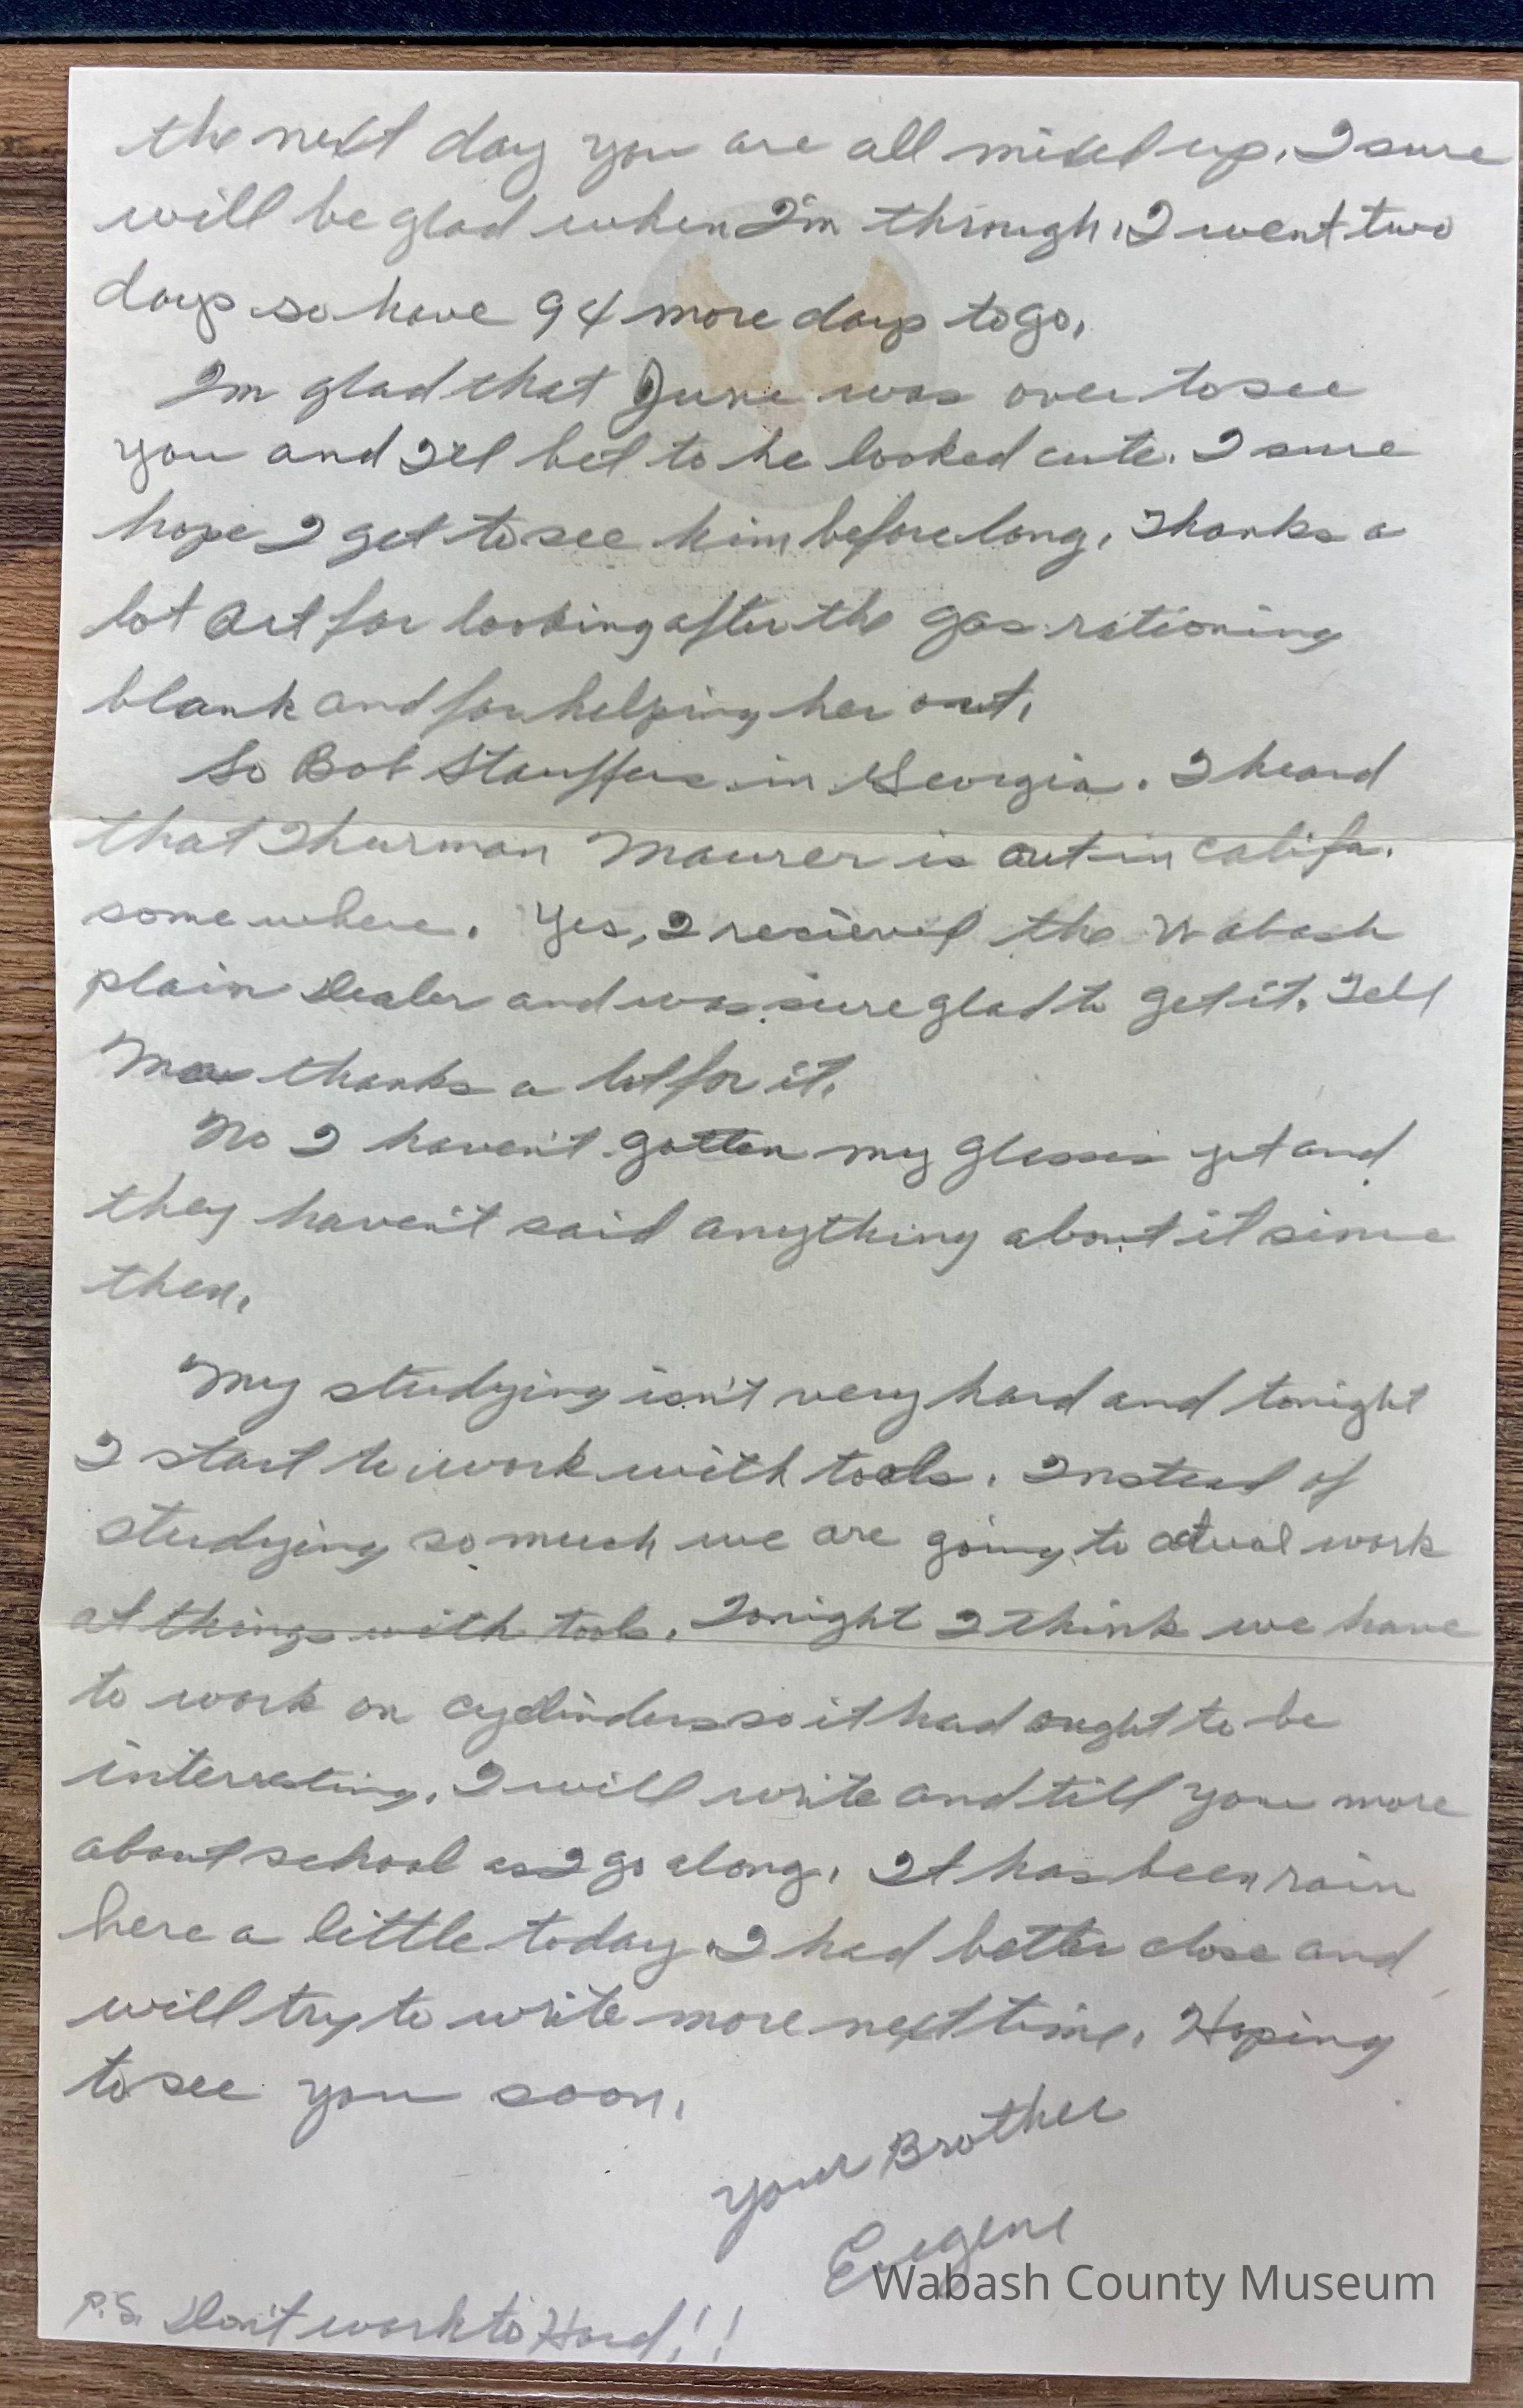 the next day you are all mixed up. I sure
will be glad when I'm through. I went two
days so have 94 more days to go.
Im glad that June was over to see
you and I'll bet to he looked cute. I sure
hope I get to see him before long. Thanks a
lot Art for looking after the gas rationing
blank and for helping her out.
So Bob Stauffers in Georgia. I heard
that Thurman Maurer is out in Califa.
some where. Yes, I recieved the Wabash
plain Dealer and was sure glad to get it. Tell
Maw thanks a lot for it.
No I haven't gotten my glasses yet and
they haven't said anything about it since
then.
My studying isn't very hard and tonight
I start to work with tools. Instead of
studying so much we are going to actual work
at things with tools. Tonight I think we have
to work on cyclinders so it had ought to be
interresting. I will write and till you more
about school as I go along. It has been rain
here a little today. I had better close and
will try to write more next time. Hoping
to see you soon.
Your Brother
Eugene
P.S. Don't work to Hard!!
Wabash County Museum